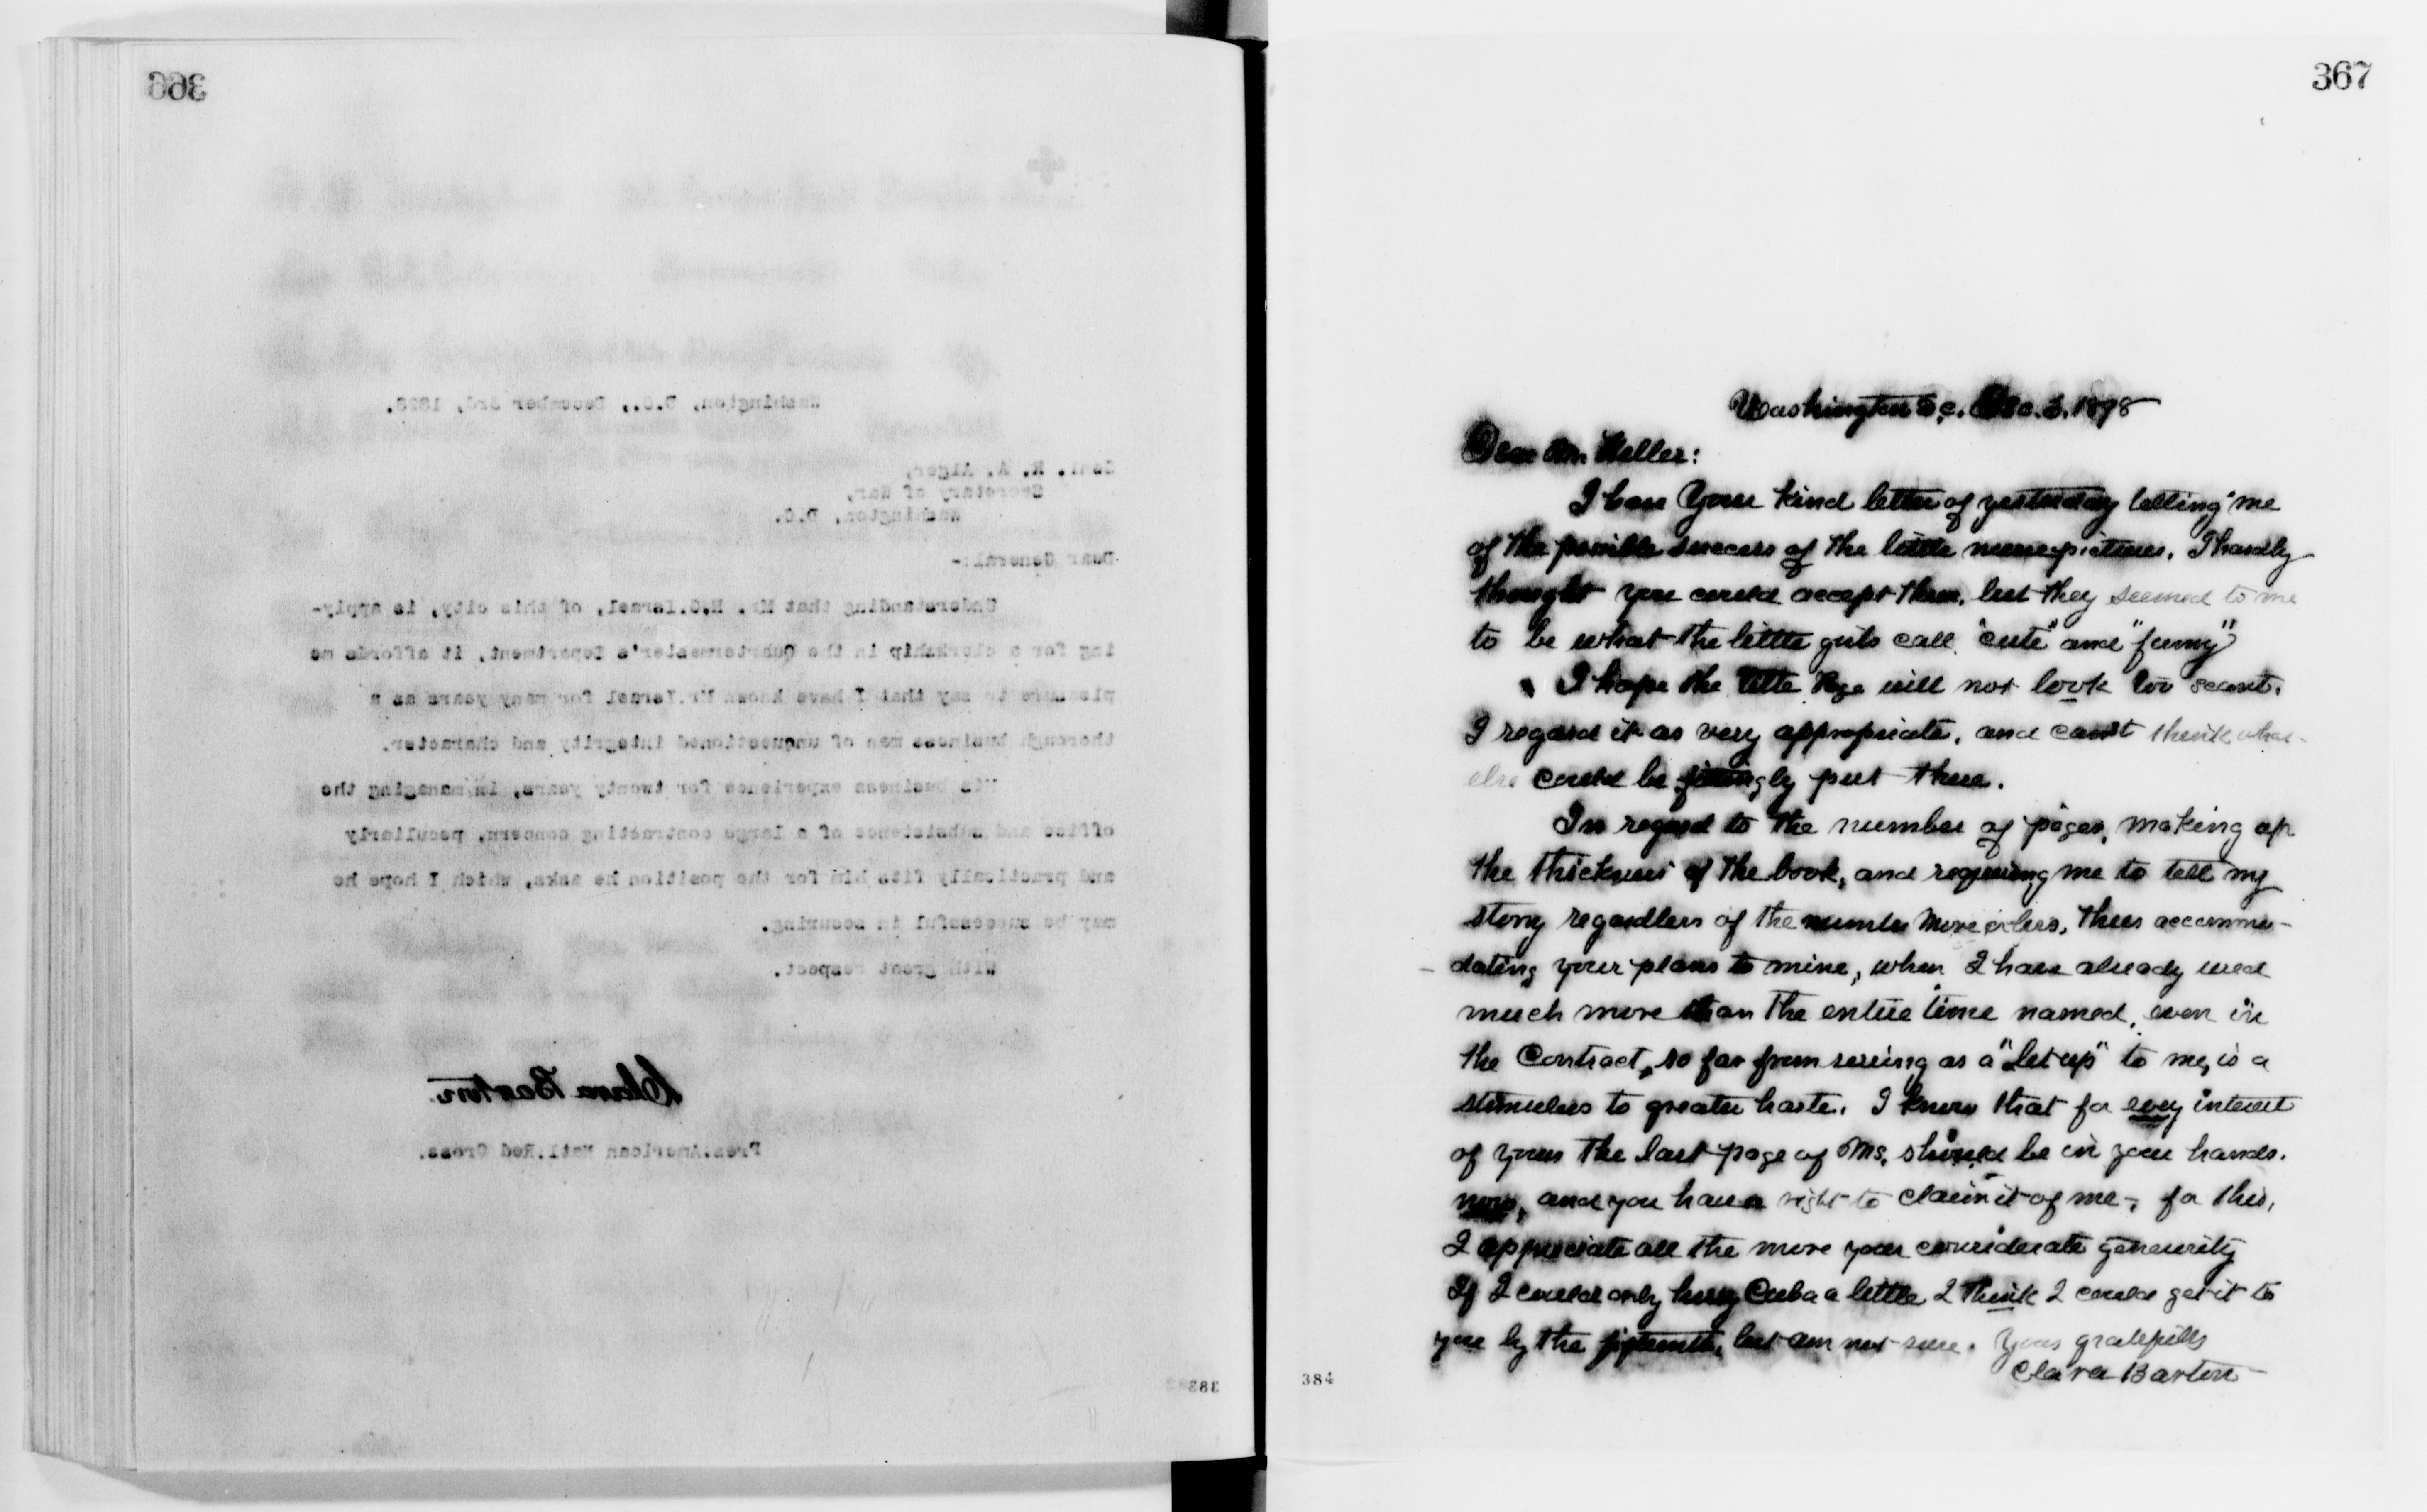 366
Washington, D.C., December 3rd, 1898.
Genl. R. A. Alger,
Secretary of War,
Washington, D.C.
Dear General:-
Understanding that Mr. H.C. Israel, of this city, is apply-
ing for a clerkship in the Quartermaster's Department, it affords me
pleasure to say that I have known Mr. Israel for many years as a
thorough business man of unquestioned integrity and character.
His business experience for twenty years, in managing the
office and subsistence of a large contracting concern, peculiarly
and practically fits him for the position he asks, which I hope he
may be successful in securing.
With great respect.
Clara Barton.
Pres. American Natl. Red Cross.
383
367
Washington D.C. Dec. 3. 1898
Dear Mr. Keller:
I have Your kind letter of yesterday telling me
of the possible success of the little nurse pictures. I hardly
thought you could accept them, but they seemed to me
to be what the little girls call "cute" and "funny"
I hope the Title Page will not look too scant.
I regard it as very appropriate, and can't think what
else could be fittingly put there.
In regard to the number of pages, making up
the thickness of the book, and requiring me to tell my
story regardless of the number more or less, thus accommo-
dating your plans to mine, when I have already used
much more than the entire time named, even in
the Contract, so far from serving as a "let up" to me, is a
stimulus to greater haste. I know that for every interest
of yours the last page of Ms. should be in your hands.
now, and you have a right to claim it of me, for this,
I appreciate all the more your considerate generosity
If I could only hurry Cuba a little I think I could get it to
you by the fifteenth, but am not sure. Yours gratefully
Clara Barton
384